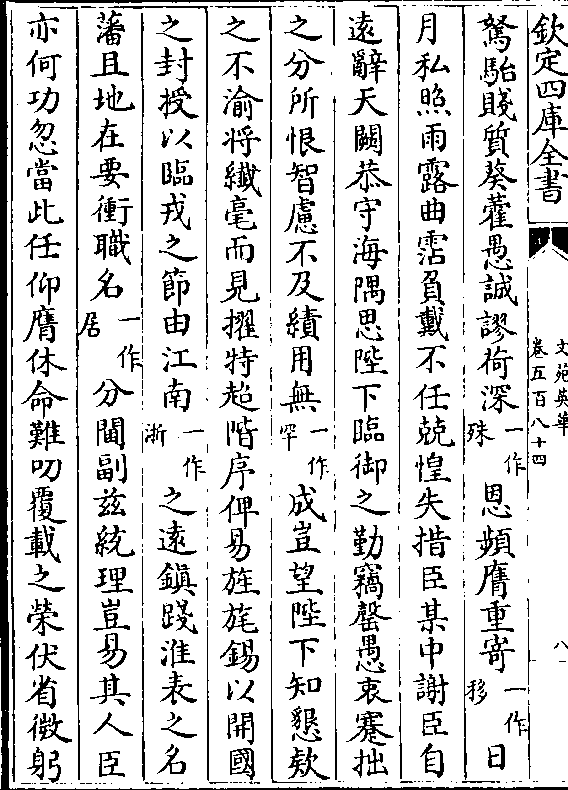 欽定四庫全書
文苑英華
卷五百八十四
八
駑駘賤質葵藿愚誠謬荷深一作殊恩頻膺重寄一作移日
月私照雨露曲霑負戴不任兢惶失措臣某中謝臣自
遠辭天闕恭守海隅思陛下臨御之勤竊罄愚衷蹇拙
之分所恨智慮不及績用無一作罕成豈望陛下知懇欵
之不渝将纎毫而見擢特超階序俾易旌旄錫以開國
之封授以臨戎之節由江南一作浙之遠鎮踐淮表之名
藩且地在要衝職名一作居分閫副兹統理豈易其人臣
亦何功忽當此任仰膺休命難叨覆載之榮伏省微躬